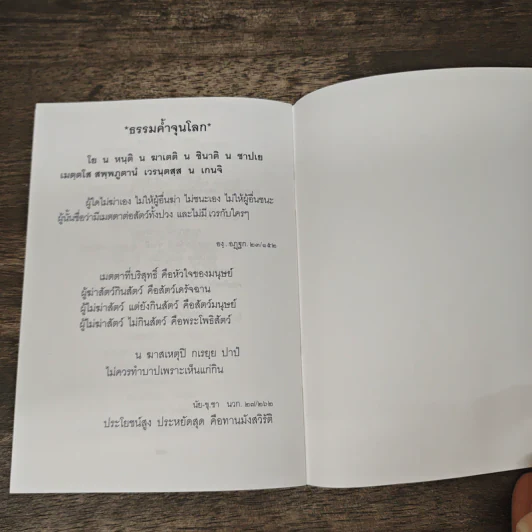 "ธรรมค้ำจุนโลก"
โย น หนฺติ น ฆาเตติ น ชินาติ น ชาปเย
เมตฺตโส สพฺพภูตานํ เวรนฺตสฺส น เกนจิ
ผู้ใดไม่ฆ่าเอง ไม่ให้ผู้อื่นฆ่า ไม่ชนะเอง ไม่ให้ผู้อื่นชนะ
ผู้นั้นชื่อว่ามีเมตตาต่อสัตว์ทั้งปวง และไม่มีเวรกับใครๆ
องฺ. อฏฺฐก. ๒๓/๑๕๒
เมตตาที่บริสุทธิ์ คือหัวใจของมนุษย์
ผู้ฆ่าสัตว์กินสัตว์ คือสัตว์เดรัจฉาน
ผู้ไม่ฆ่าสัตว์ แต่ยังกินสัตว์ คือสัตว์มนุษย์
ผู้ไม่ฆ่าสัตว์ ไม่กินสัตว์ คือพระโพธิสัตว์
น ฆาสเหตุปิ กเรยฺย ปาปํ
ไม่ควรทำบาปเพราะเห็นแก่กิน
นัย-ขุ.ชา นวก. ๒๗/๒๖๒
ประโยชน์สูง ประหยัดสุด คือทานมังสวิรัติ